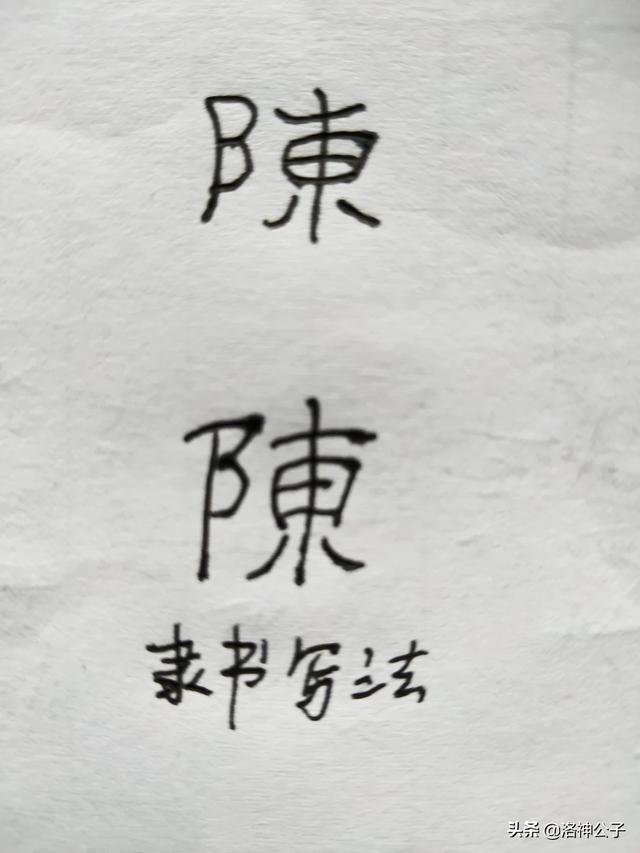 陳
陳
隶书写法
头条 @洛神公子